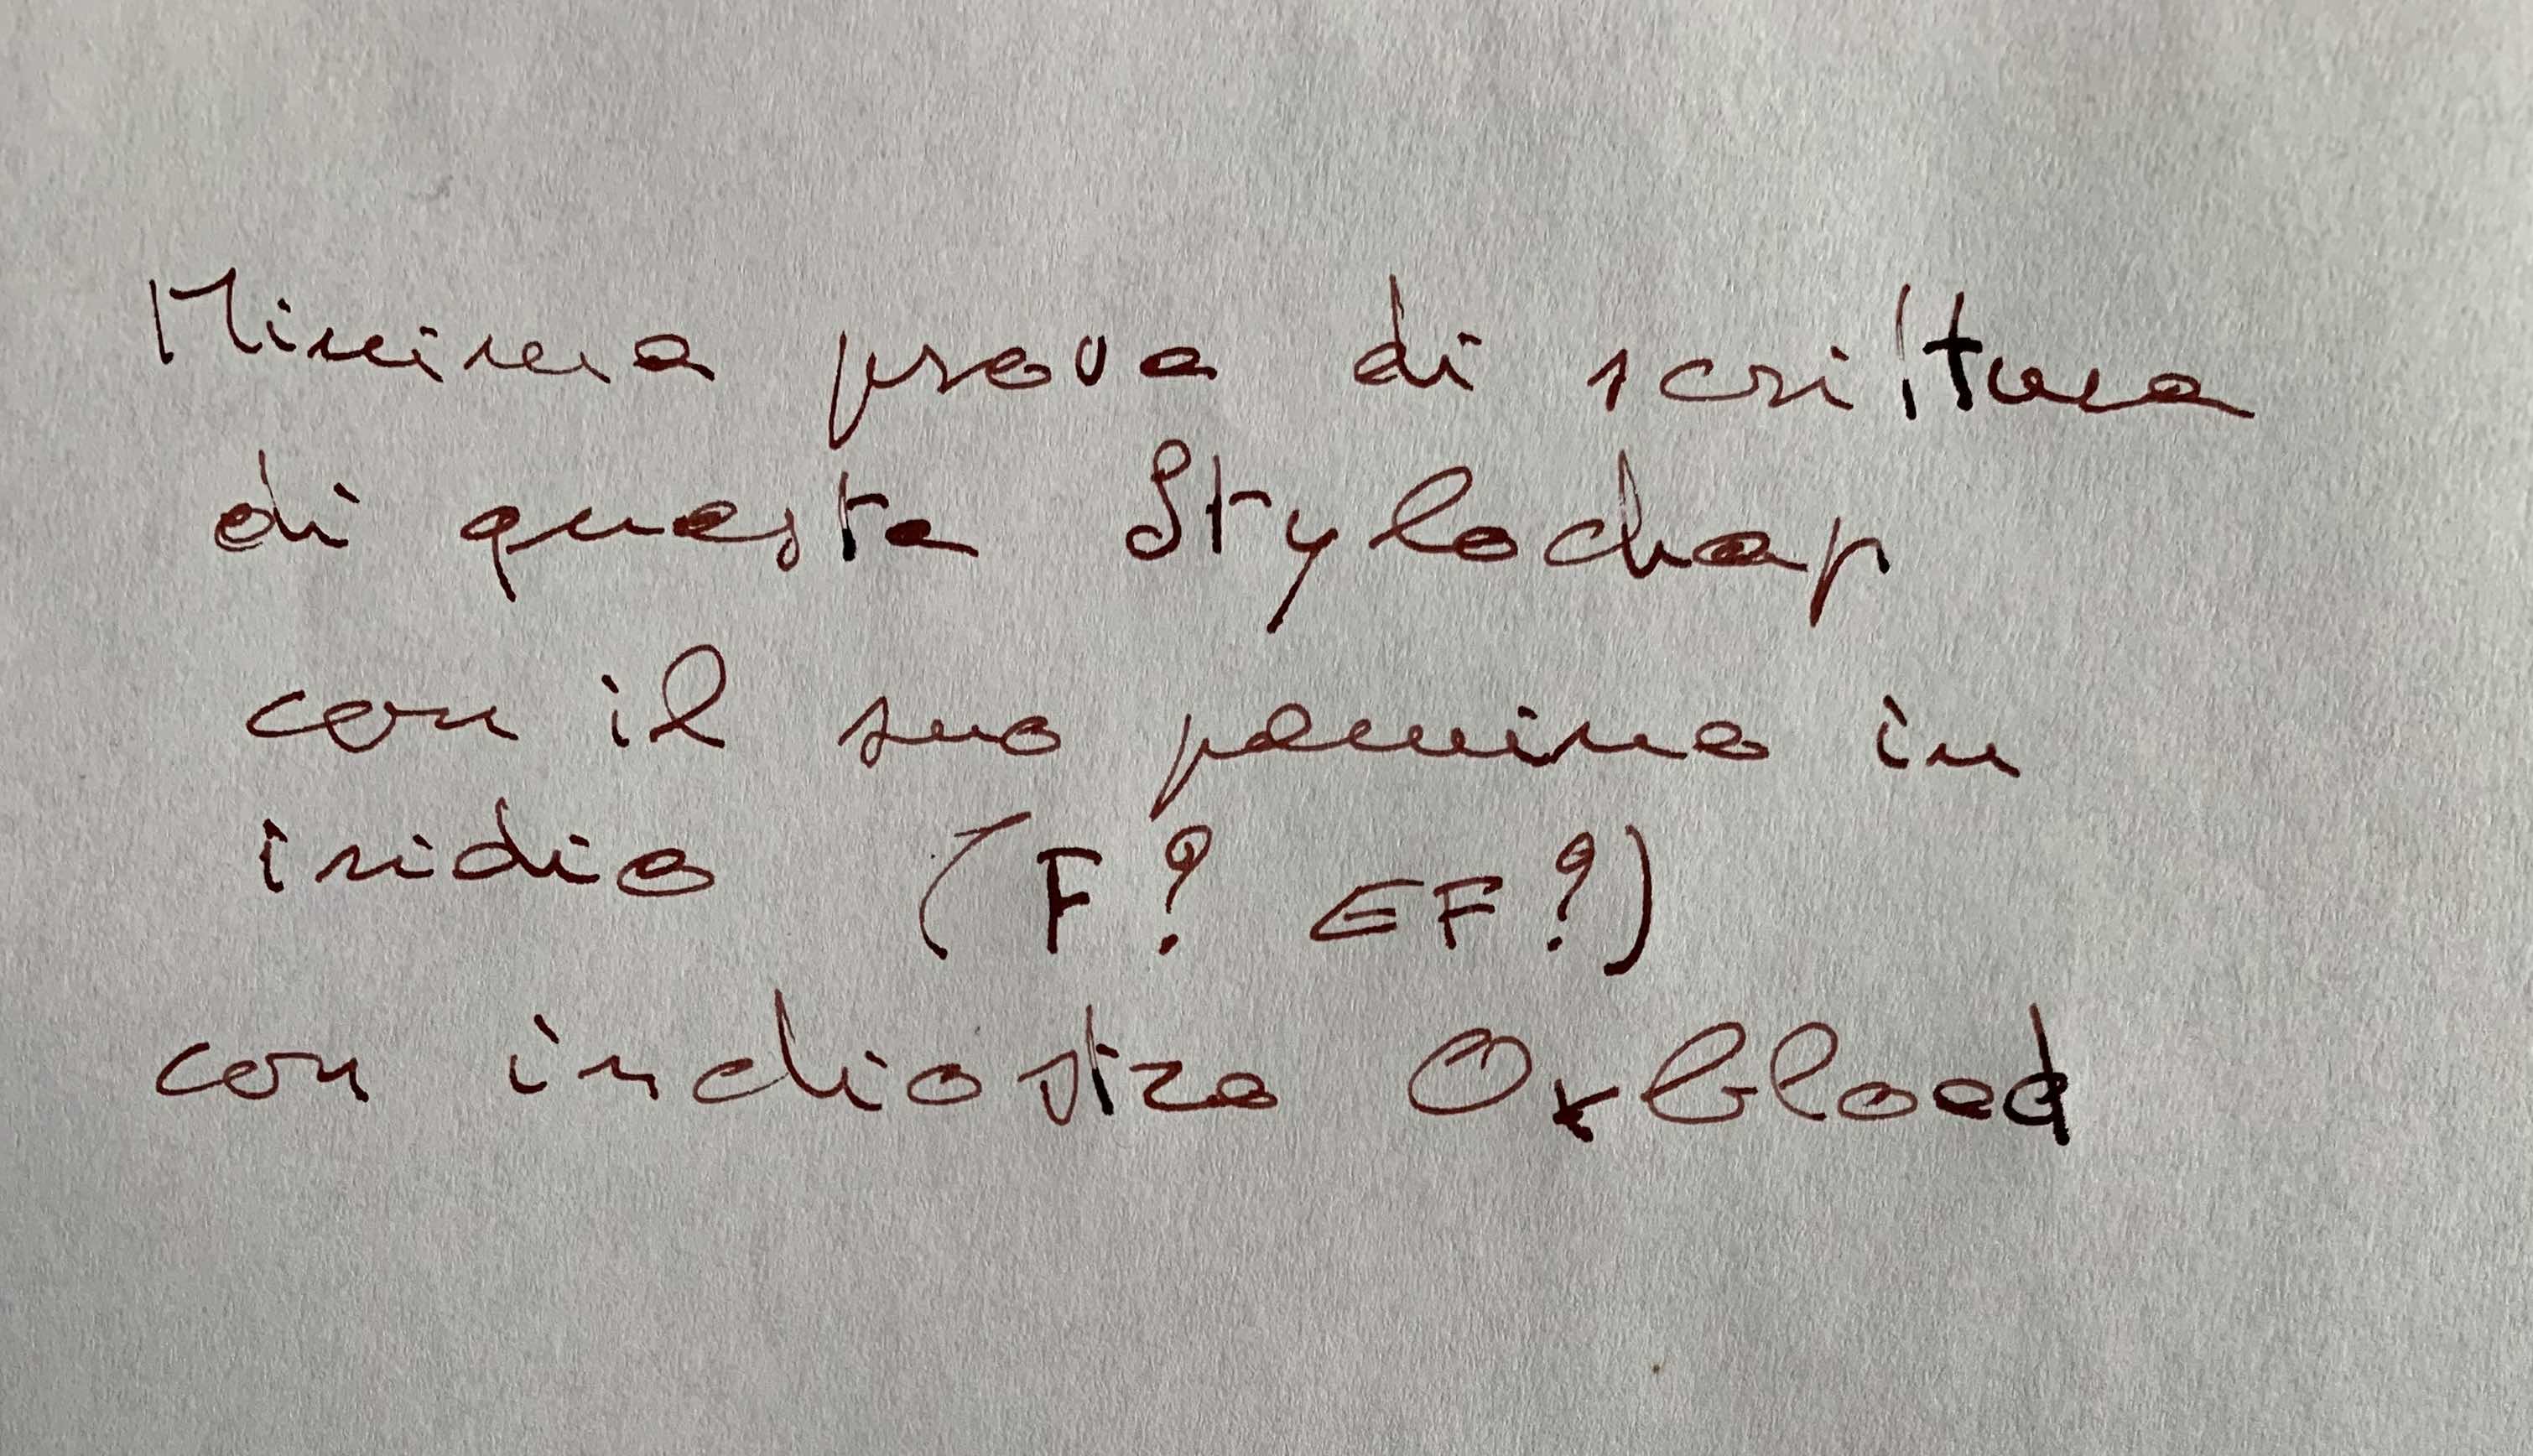 Minima prova di scrittura
di questa Stylochap
con il suo pennino in
iridio (F? EF?)
con inchiostro Oxblood